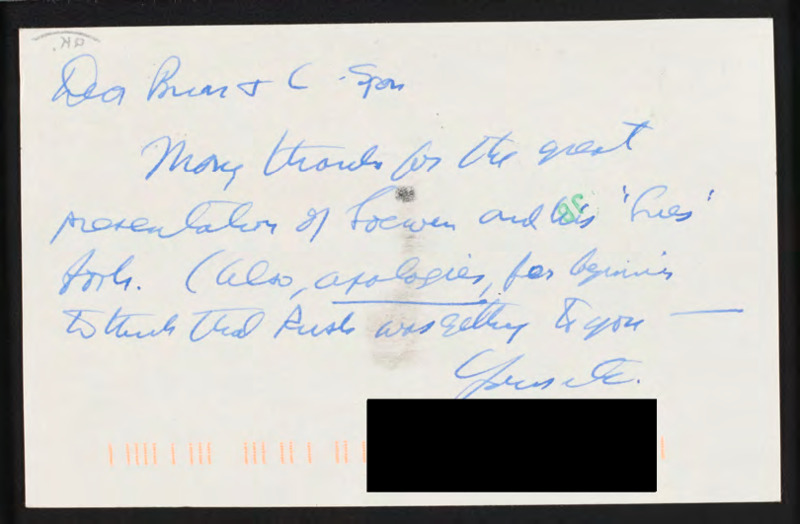 Dear Brian & C-Span
Many thanks for the great
presentation of Loewen and his 'Lies'
book. (Also, apologies, for beginning
to think that Rush was getting to you —
Yours etc.